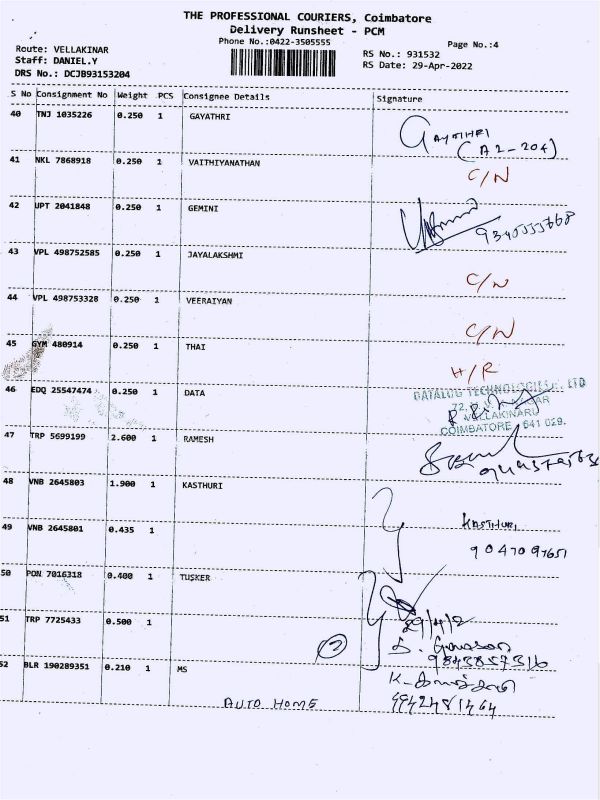 THE PROFESSIONAL COURIERS, Coimbatore
Delivery Runsheet - PCM
Phone No.:0422-3505555
Page No.:4
Route: VELLAKINAR
Staff: DANIEL.Y
DRS No.: DCJB93153204
RS No.: 931532
RS Date: 29-Apr-2022
S No Consignment No Weight PCS Consignee Details Signature
40 TNJ 1035226 0.250 1 GAYATHRI GAYATHRI
(A2-204)
41 NKL 7868918 0.250 1 VAITHIYANATHAN C/N
42 UPT 2041848 0.250 1 GEMINI
43 VPL 498752585 0.250 1 JAYALAKSHMI C/N
44 VPL 498753328 0.250 1 VEERAIYAN C/N
45 GYM 480914 0.250 1 THAI H/R
46 EDQ 25547474 0.250 1 DATA
DATALOG TECHNOLOGIES LTD
VELLAKINARU
COIMBATORE - 641 029.
47 TRP 5699199 2.600 1 RAMESH
48 VNB 2645803 1.900 1 KASTHURI KASTHURI
49 VNB 2645801 0.435 1
50 PON 7016318 0.400 1 TUSKER
51 TRP 7725433 0.500 1
29/4/2
9843857316
52 BLR 190289351 0.210 1 MS
AUTO HOME
9942481464